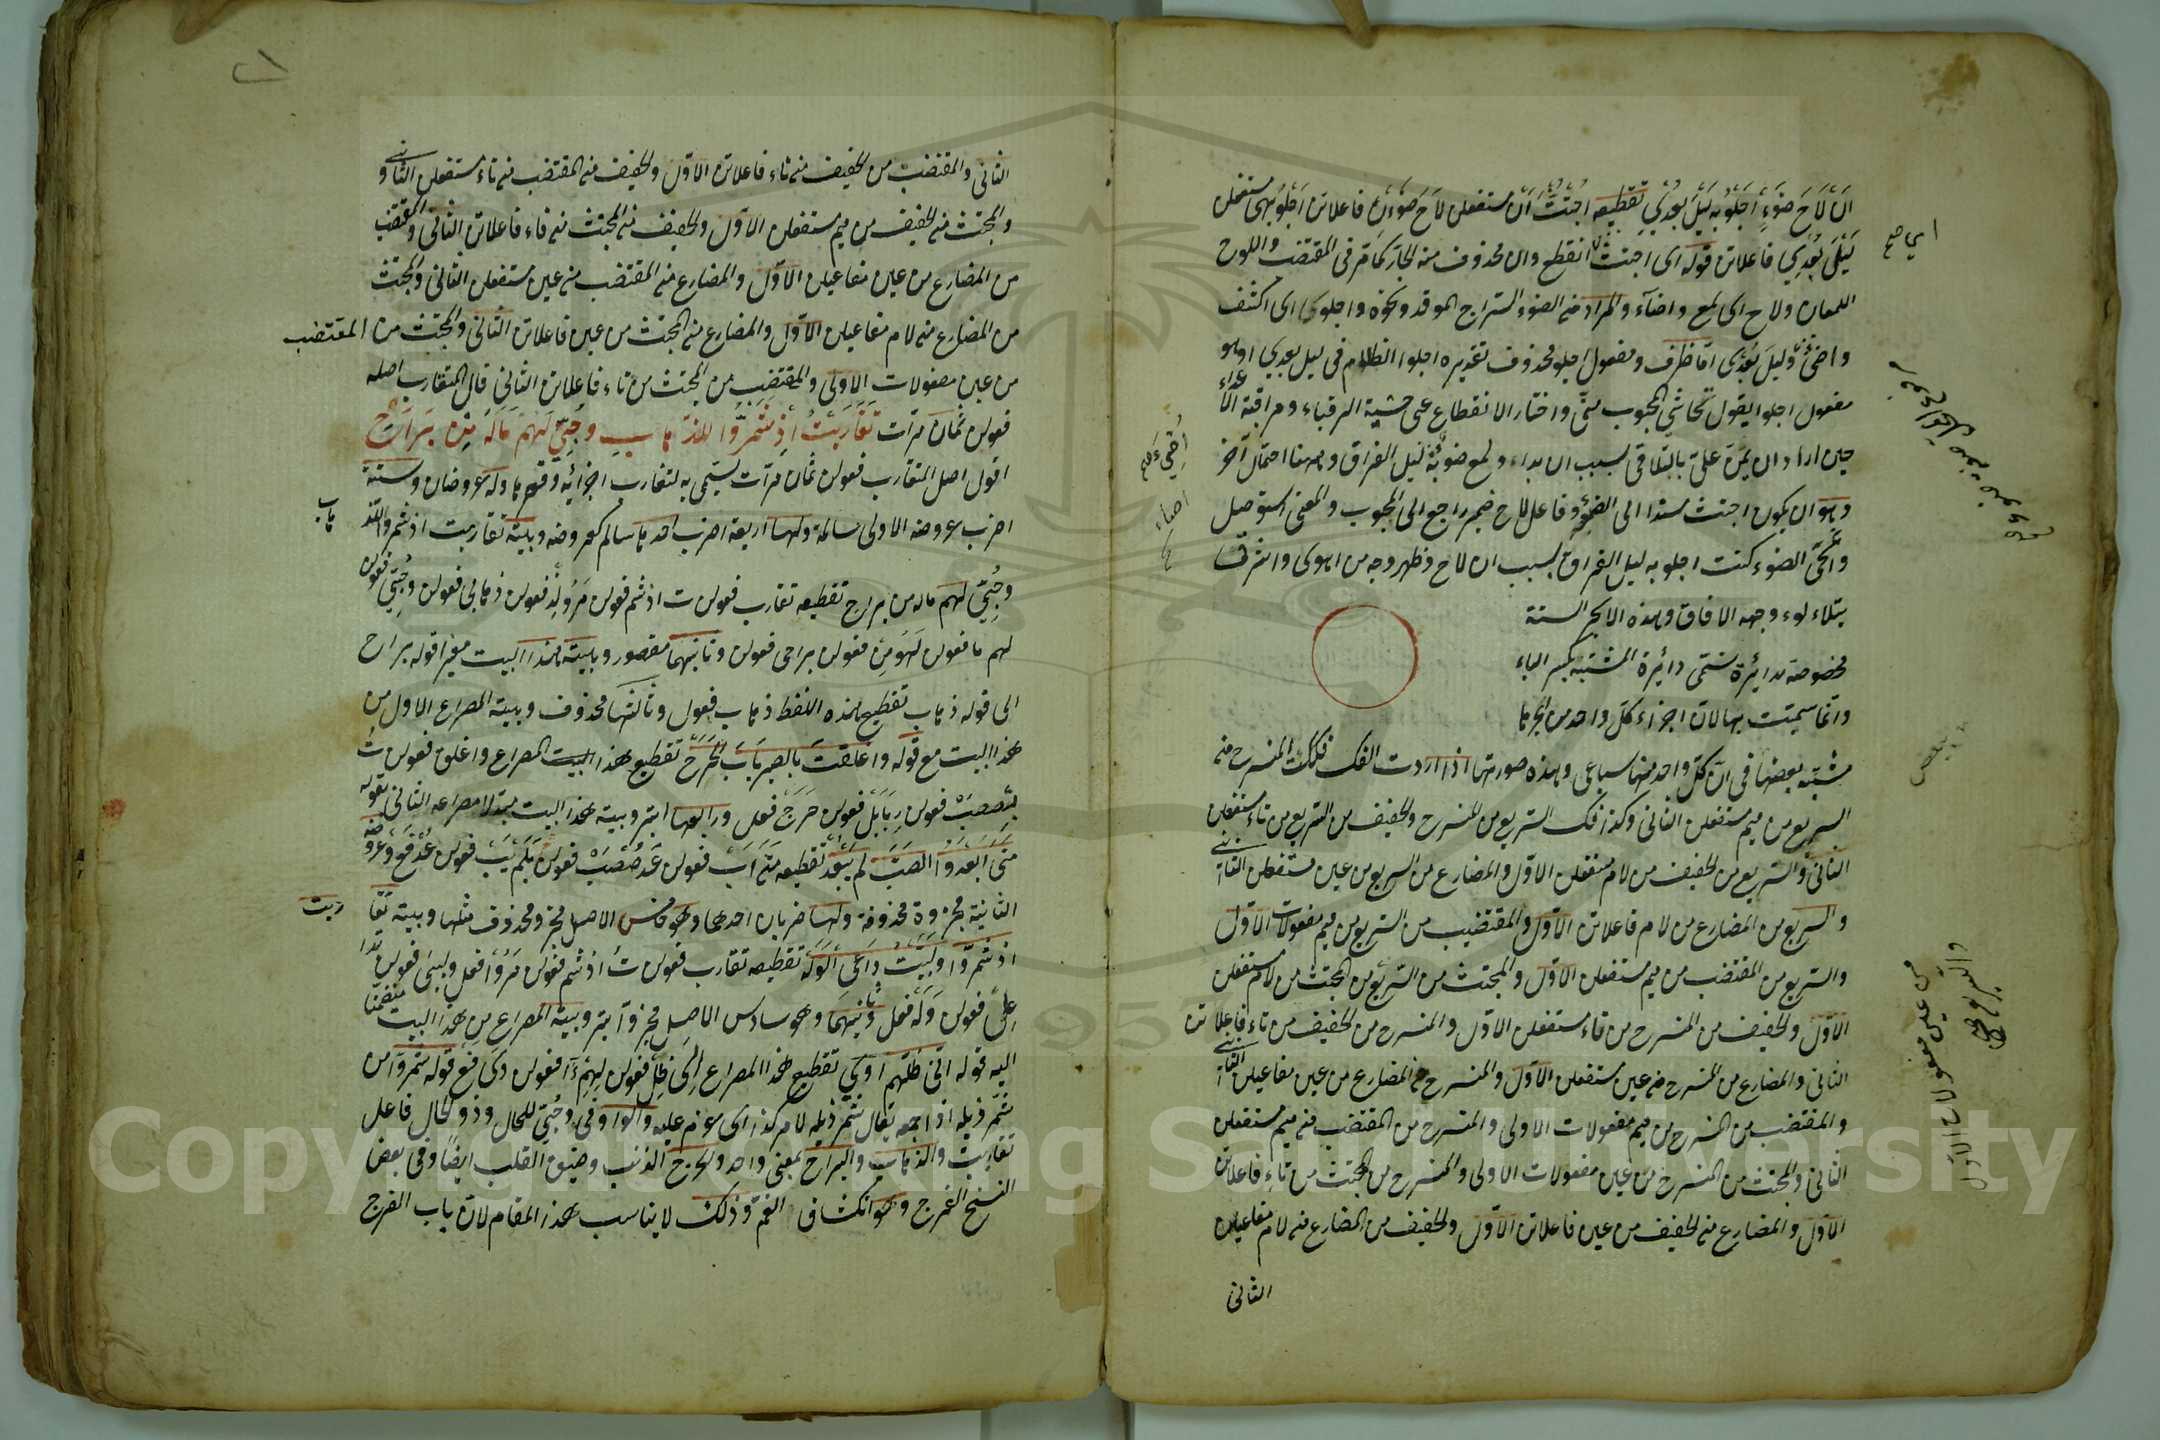 ان لاح ضوء اجلو به ليل بعدي تقطيعه اجتث ان مستفعلن لاح ضوءن فاعلاتن اجلو بهي مستفعلن
ليلى بعدي فاعلاتن قوله اي اجتث انقطع وان محذوف منه الجار كما مر في المقتضب واللوح
اللمعان ولاح اي لمع واضاء والمراد من الضوء السراج الموقد ونحوه واجلو اي اكشف
وليل بعدي اما ظرف ومفعول اجلو محذوف تقديره اجلوا الظلام في ليل بعدي او هو
مفعول اجلوا يقول تحاشي المحبوب مني واختار الانقطاع عني خشية الرقباء ومراقبة الأعداء
حين اراد ان يمن علي بالتلاقي بسبب ان بداء ولمع ضوئه ليل الفراق وههنا احتمال آخر
وهو ان يكون اجتث مسندا الى الضوء وفاعل لاح ضمير راجع الى المحبوب والمعنى استوصل
الضوء كنت اجلو به ليل الفراق بسبب ان لاح وظهر وجه من اهوى واشرقت
بتلاء لوء وجهه الافاق وهذه الابحر الستة
مخصوصة بدائرة تسمى دائرة المشتبه بكسر الباء
وانما سميت بها لان اجزاء كل واحد من ابحرها
مشتبه بعضها في ان كل واحد منها سباعي وهذه صورتها اذا اردت الفك فكك المنسرح من
السريع من ميم مستفعلن الثاني وكذا فك السريع من المنسرح والخفيف من السريع من تاء مستفعلن
الثاني والسريع من الخفيف من لام مستفعلن الاول والمضارع من السريع من عين مستفعلن الثاني
والسريع من المضارع من لام فاعلاتن الاول والمقتضب من السريع من ميم مفعولات الاول
والسريع من المقتضب من ميم مستفعلن الاول والمجتث من السريع من المجتث من لام مستفعلن
الاول والخفيف من المنسرح من تاء مستفعلن الاول والمنسرح من الخفيف من تاء فاعلاتن
الثاني والمضارع من المنسرح من عين مستفعلن الاول والمنسرح من المضارع من عين مفاعيلن الثاني
والمقتضب من المنسرح من ميم مفعولات الاولى والمنسرح من المقتضب من ميم مستفعلن
الثاني والمجتث من المنسرح من عين مفعولات الاولى والمنسرح من المجتث من تاء فاعلاتن
الاول والمضارع من الخفيف من عين فاعلاتن الاول والخفيف من المضارع من لام مفاعيلن
الثاني
والسريع
من عين مفعولات الاول
الثاني والمقتضب من الخفيف من تاء فاعلاتن الاول والخفيف من المقتضب من تاء مستفعلن الثاني
والمجتث من الخفيف من ميم مستفعلن الاول والخفيف من المجتث من فاء فاعلاتن الثاني والمقتضب
من المضارع من عين مفاعيلن الاول والمضارع من المقتضب من عين مستفعلن الثاني والمجتث
من المضارع من لام مفاعيلن الاول والمضارع من المجتث من عين فاعلاتن الثاني والمجتث من المقتضب
من عين مفعولات الاولى والمقتضب من المجتث من تاء فاعلاتن الثاني قال المتقارب اصله
فعولن ثمان مرات تقاربت اذ شمروا للذهاب وحبي لهم ماله من براح
اقول اصل المتقارب فعولن ثمان مرات يسمى به لتقارب اجزائه وله عروضان وستة
اضرب عروضه الاولى سالمة ولها اربعة اضرب احدها سالم كعروضه وبيته تقاربت اذ شمروا للذ
هاب
وحبي لهم ماله من براح تقطيعه تقارب فعولن ت اذ شم فعولن مرو للذ فعولن ذهابي فعولن وحبي فعولن
لهم ما فعولن لهو من فعولن براحي فعولن وثانيها مقصور وبيته هذا البيت مغيرا قوله براح
الى قوله ذهاب تقطيع هذه اللفظ ذهاب فعول وثالثها محذوف وبيته المصراع الاول من
هذا البيت مع قوله واغلقت بالصبر باب الحرج تقطيع هذا البيت المصراع واغلق فعولن ت
بصصب فعولن ربابل فعولن حرج فعل ورابعها ابتر وبيته هذا البيت مبدلا مصراعه الثاني بقوله
متى ابعدوا الصب لم يبعد تقطيعه متى اب فعولن عد صصب فعولن بلم يب فعولن عد فع وعروضه
الثانية مجزوة محذوفة ولها ضربان احدهما وهو خامس الاصل مجز ومحذوف مثلها وبيته تقا
ربت
اذ شمروا ولبيت داعي الوله تقطيعه تقارب فعولن ت اذ شم فعولن مروا فعل ولببى فعولن تدا
عل فعولن وله فعل وثانيهما وهو سادس الاصل مجزو ابتر وبيته المصراع من هذا البيت منضما
اليه قوله الى ظلهم اوي تقطيع هذا المصراع الى ظل فعولن لهم أا فعولن وي فع قوله شمروا من
شمر ذيله اذا جمعه يقال شمر ذيله لامر كذا اي عزم عليه والواو في وحبي للحال وذو الحال فاعل
تقاربت والذهاب والبراح بمعنى واحد والحرج الذنب وضيق القلب ايضا وفي بعض
النسخ الفرج وهو انكشاف الغم وذلك لا يناسب هذا المقام لان باب الفرج
Copyright © King Saud University
1957